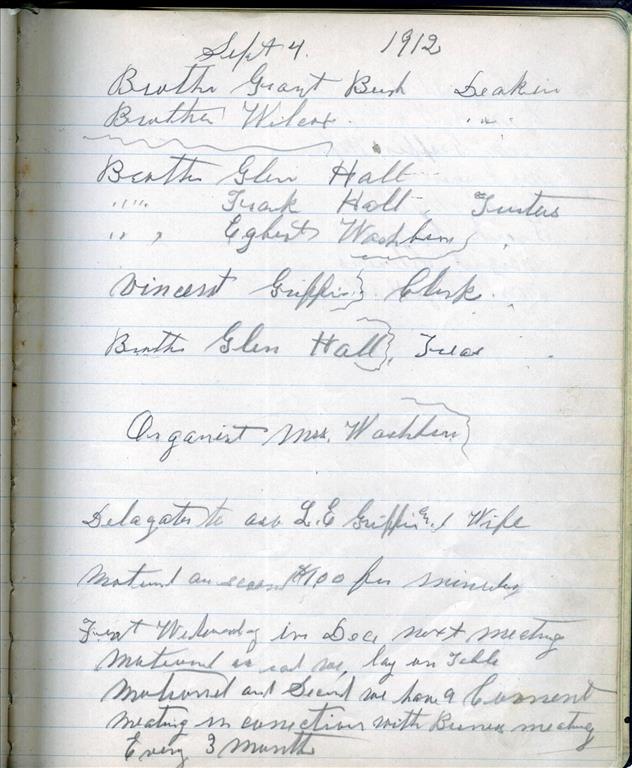 Sept 4. 1912
Brothe Grant Bush Deakin
Brother Wilcox " "
Brothe Glen Hall
" " Frank Hall Trustees
" " Egbert Washburn
Vincent Griffin Clerk
Brothe Glen Hall, Treas
Organist Mrs. Washburn
Delagates to aso L.E Griffin & Wife
Motiond an $1.00 for minutes
First Wednesday in Dec, next meeting
Motiond we, lay on Table
Motioned and Second we have a Covenent
Meating in conection with Buness meeting
Every 3 month